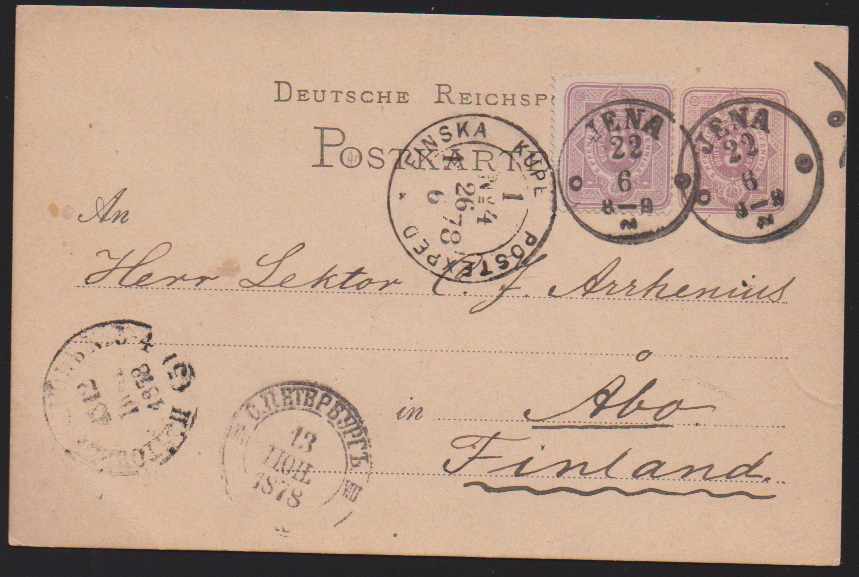 DEUTSCHE REICHSP
POSTKART
JENA
22
6
8-9
N
JENA
22
6
8-9
N
FINSKA KUPÉ POSTEXPED
1
No 4
26 78
6
An
Herr Lektor C. J. Arrhenius
in Åbo
Finland.
С.ПЕТЕРБУРГЪ
13
ІЮН
1878
1878
(5)